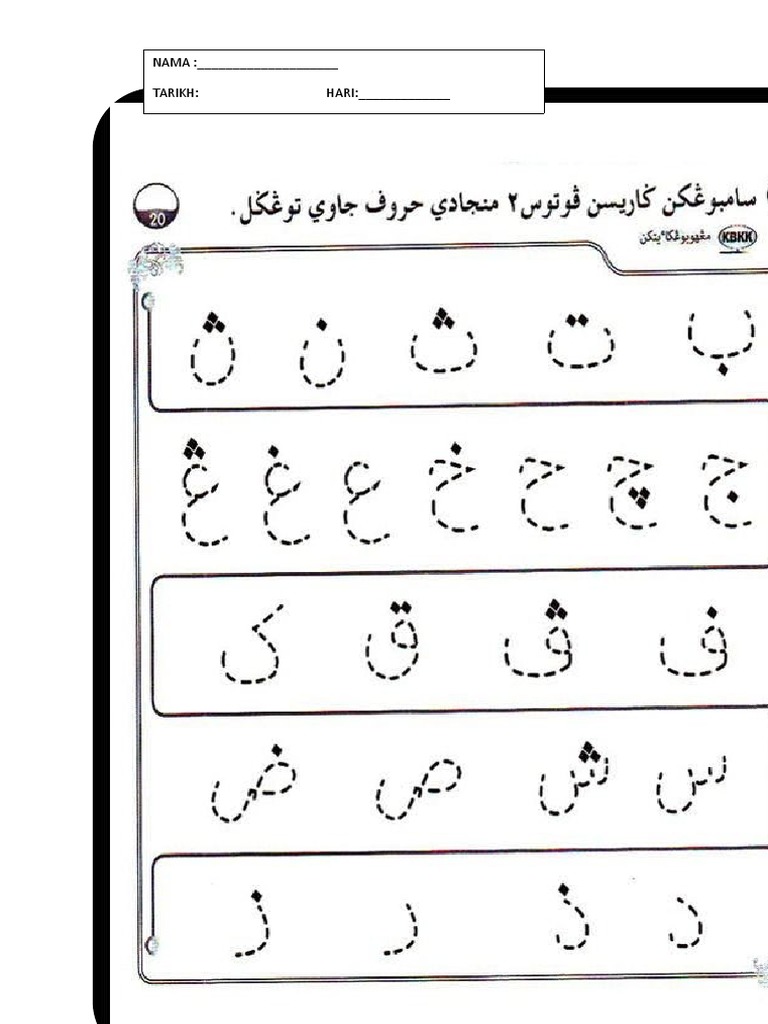 NAMA :____________________
TARIKH: HARI:_____________
سامبوڠکن ݢاريسن ڤوتوس٢ منجادي حروف جاوي توڠݢل.
20
KBKK مڠهوبوڠکاءيتکن
ب ت ث ن ڽ
ج چ ح خ ع غ ڠ
ف ڤ ق ک
س ش ص ض
د ذ ر ز